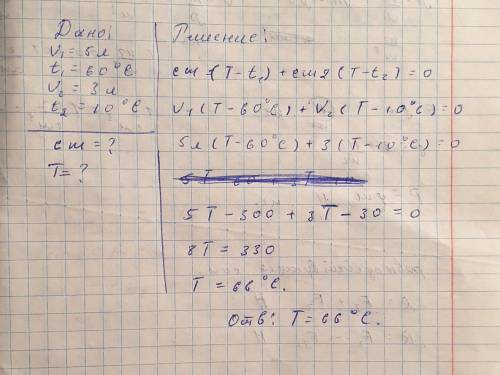 Дано:
V₁ = 5л
t₁ = 60°C
V₂ = 3л
t₂ = 10°C
cm = ?
T = ?
Ршение:
cm1(T-t₁) + cm2(T-t₂) = 0
V₁(T-60°C) + V₂(T-10°C) = 0
5л(T-60°C) + 3(T-10°C) = 0
5T - 300 + 3T - 30 = 0
8T = 330
T = 66°C.
Отв: T = 66°C.